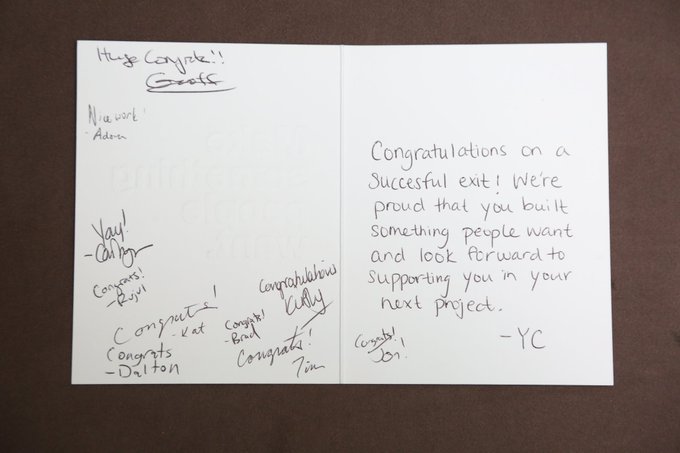 Huge Congrats!!
Geoff
Nice work!
- Adora
Yay!
Congrats!
- Rujul
Congrats!
- Kat
Congrats
- Dalton
Congratulations
Kirsty
Congrats!
- Brad
Congrats!
Tim
Make
something
people
want.
Congratulations on a
Succesful exit! We're
proud that you built
something people want
and look forward to
supporting you in your
next project.
- YC
Congrats!
Jon!